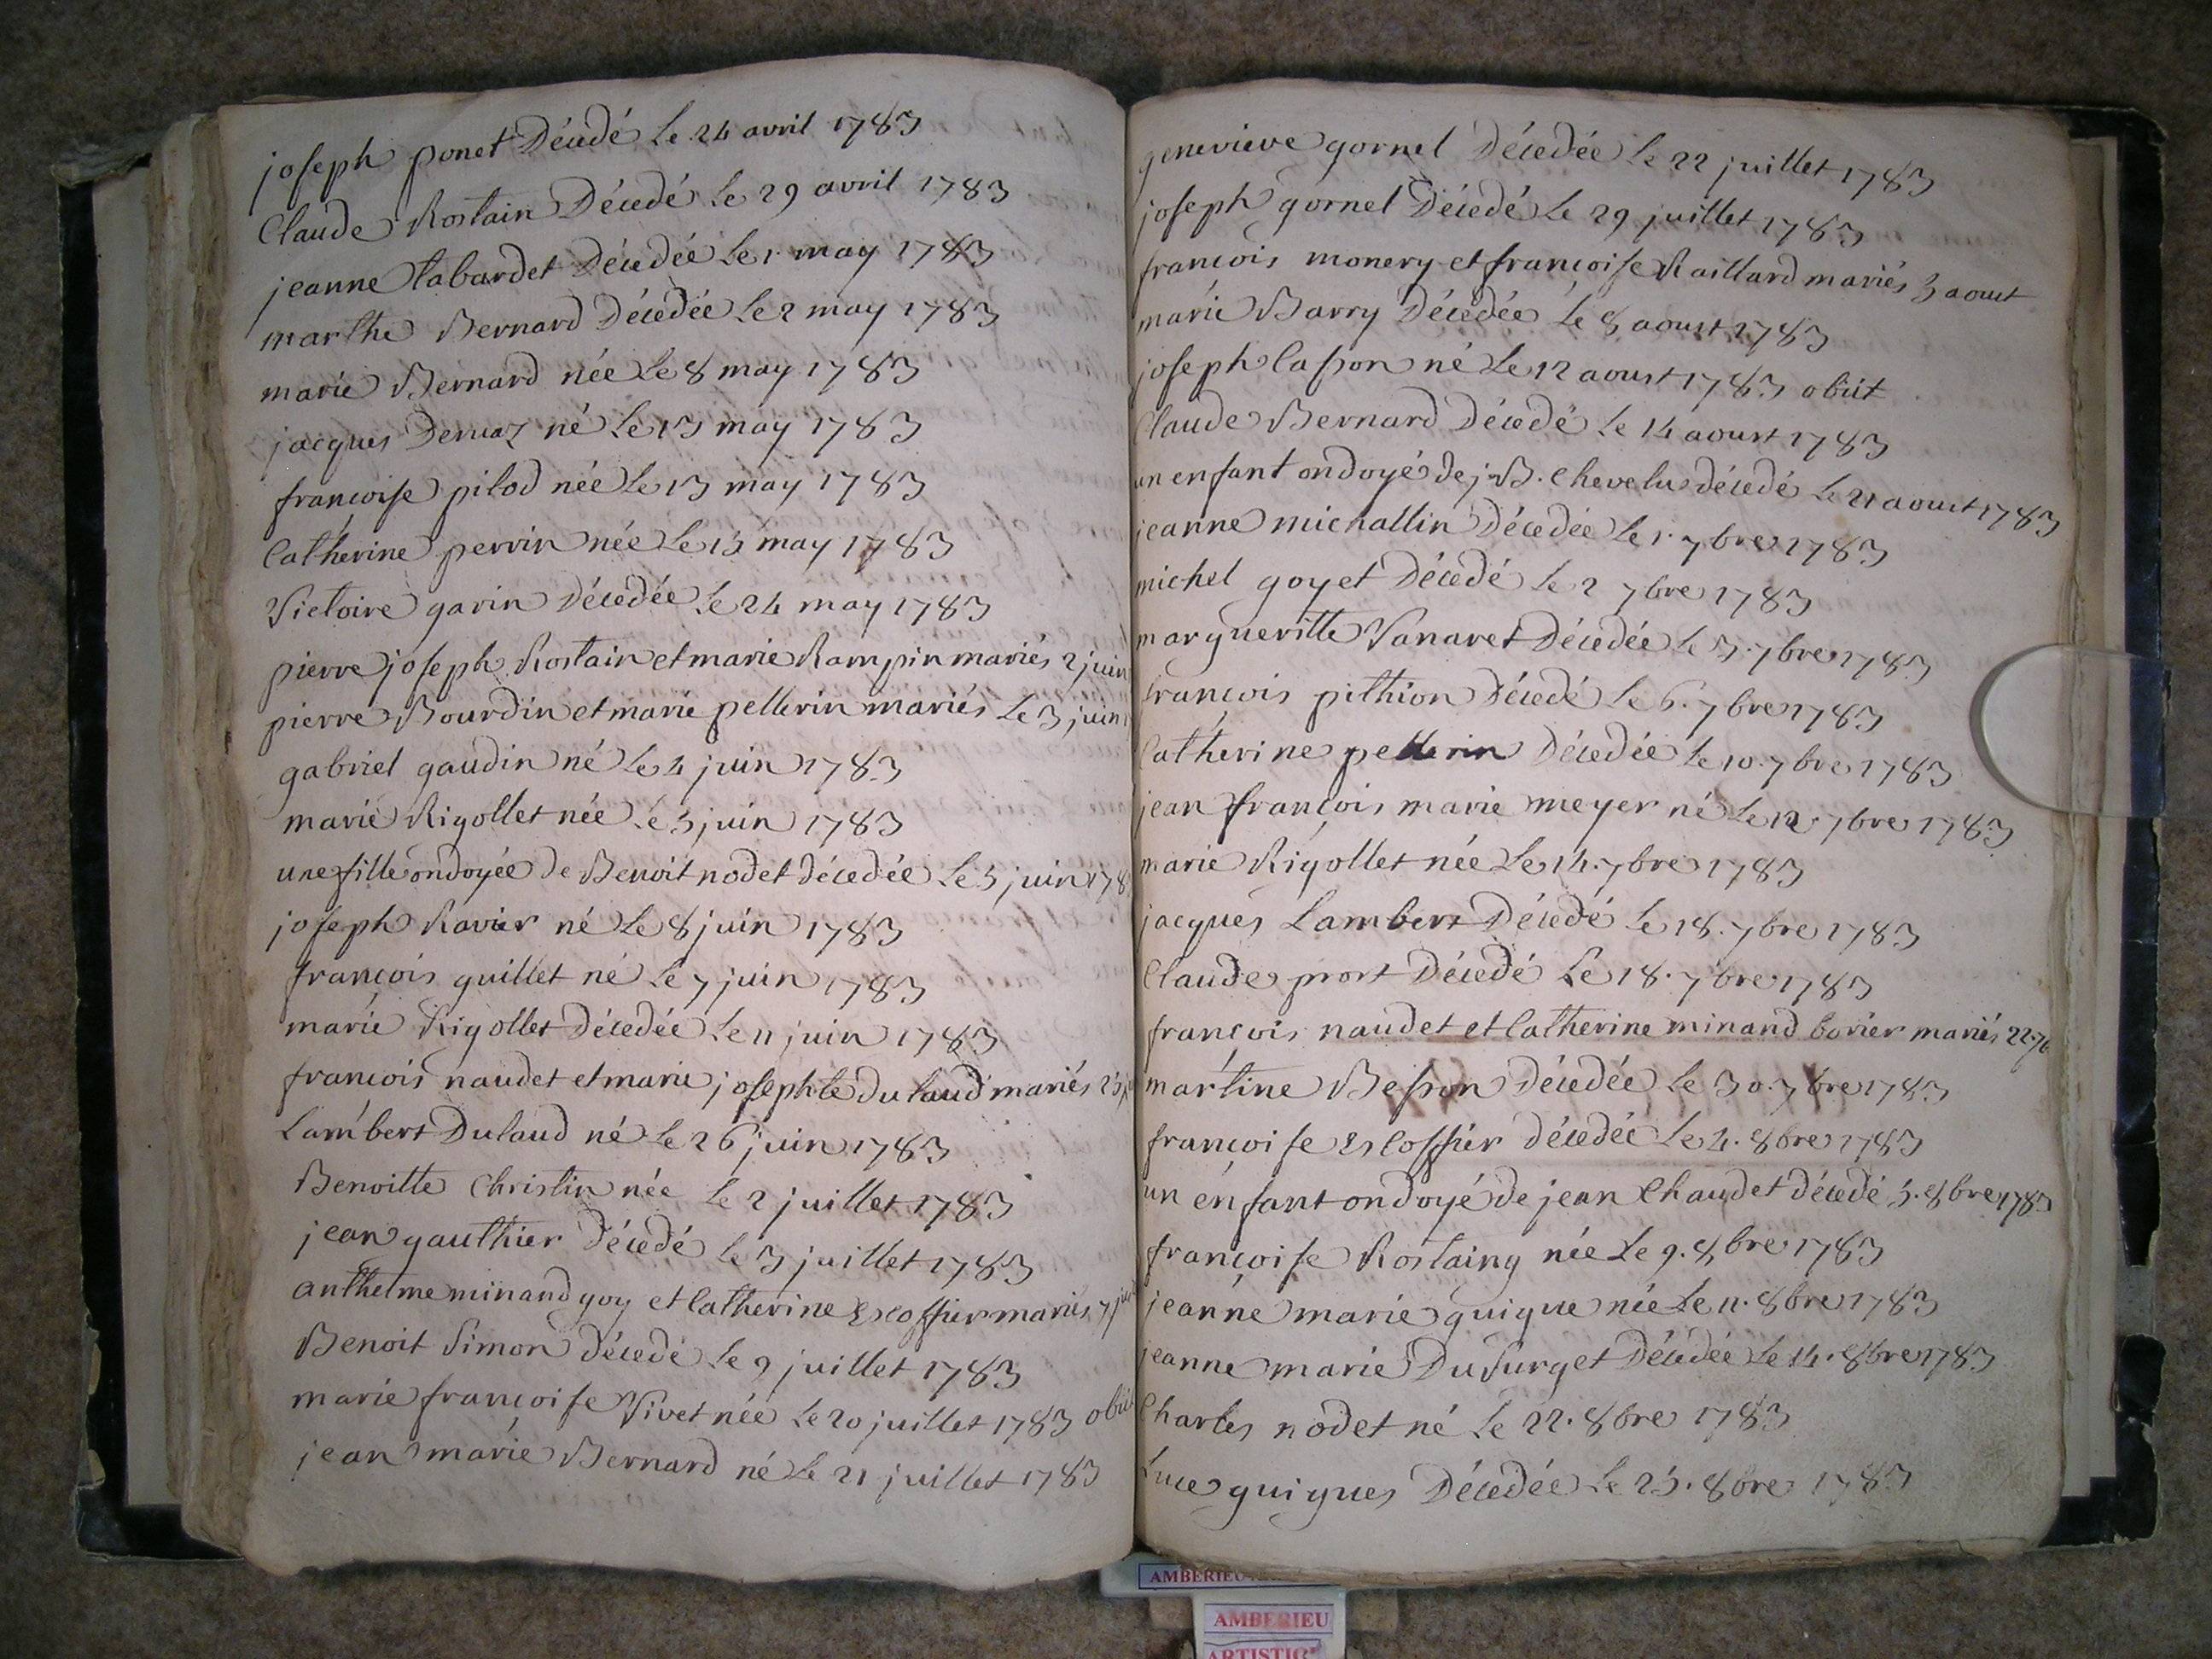 joseph ponet Décédé le 24 avril 1783
Claude Rostain Décédé le 29 avril 1783
jeanne tabardet Décédée le 1. may 1783
marthe Bernard Décédée le 2 may 1783
marie Bernard née le 8 may 1783
jacques Dernaz né le 13 may 1783
françoise pilod née le 13 may 1783
Catherine perrin née le 15 may 1783
Victoire garin Décédée le 24 may 1783
pierre joseph Rostain et marie Rampin mariés 2 juin
pierre Bourdin et marie pellerin mariés le 3 juin
gabriel gaudin né le 4 juin 1783
marie Rigollet née le 5 juin 1783
une fille ondoyée de Benoit nodet décédée le 5 juin 178
joseph Ravier né le 8 juin 1783
françois guillet né le 7 juin 1783
marie Rigollet Décédée le 11 juin 1783
françois naudet et marie josephte dulaud mariés 25
Lambert Dulaud né le 26 juin 1783
Benoitte Christin née le 2 juillet 1783
jean gauthier décédé le 3 juillet 1783
anthelme minand goy et Catherine Escoffier mariés 7
Benoit Simon décédé le 9 juillet 1783
marie françoise Vivet née le 20 juillet 1783
jean marie Bernard né le 21 juillet 1783
genevieve gornel Décédée le 22 juillet 1783
joseph gornel Décédé le 29 juillet 1783
françois monery et françoise Raillard mariés 3 aoust
marie Barry Décédée le 8 aoust 1783
joseph Casson né le 12 aoust 1783 obiit
Claude Bernard Décédé le 14 aoust 1783
un enfant ondoyé de j. B. Chevelu décédé le 21 aoust 1783
jeanne michallin Décédée le 1. 7bre 1783
michel goyet Décédé le 2 7bre 1783
margueritte Vanaret Décédée le 3. 7bre 1783
françois pithion Décédé le 6. 7bre 1783
Catherine pellerin Décédée le 10. 7bre 1783
jean françois marie meyer né le 12. 7bre 1783
marie Rigollet née le 14. 7bre 1783
jacques Lambert Décédé le 18. 7bre 1783
Claude prost Décédé le 18. 7bre 1783
françois naudet et Catherine minand borier mariés 22. 7b
martine Besson Décédée le 30. 7bre 1783
françoise Escoffier décédée le 4. 8bre 1783
un enfant ondoyé de jean Chaudet décédé 5. 8bre 1783
françoise Rostaing née le 9. 8bre 1783
jeanne marie guigue née le 11. 8bre 1783
jeanne marie Dusurget Décédée le 14. 8bre 1783
Charles nodet né le 22. 8bre 1783
Luce guigues Décédée le 25. 8bre 1783
AMBERIEU
AMBERIEU